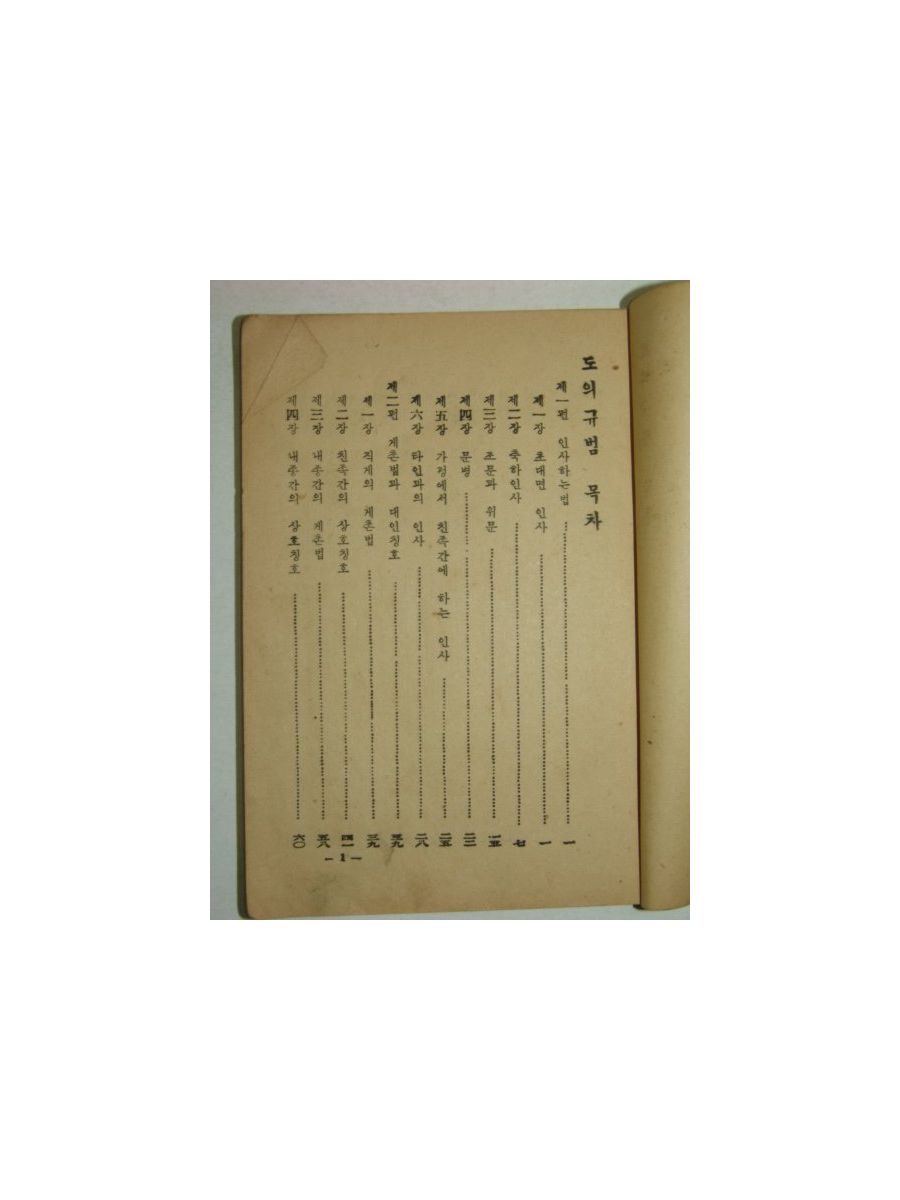 도의규범 목차
제一편 인사하는법 …… 一
제一장 초대면 인사 …… 一
제二장 축하인사 …… 七
제三장 조문과 위문 …… 一五
제四장 문병 …… 二三
제五장 가정에서 친족간에 하는 인사 …… 二五
제六장 타인과의 인사 …… 二八
제二편 계촌법과 대인칭호 …… 三九
제一장 직계의 계촌법 …… 三九
제二장 친족간의 상호칭호 …… 四一
제三장 내종간의 계촌법 …… 五八
제四장 내종간의 상호칭호 …… 六〇
— 1 —